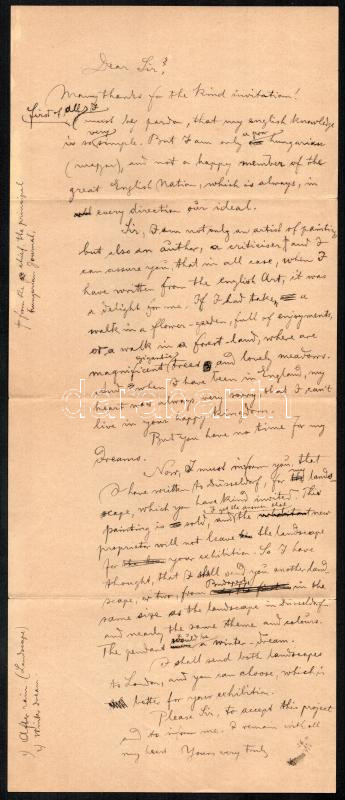 Dear Sir!
Many thanks for the kind invitation!
first of all I
must be perdon, that my english knowledge
is so very simple. But I am only a poor hungarian
(magyar), and not a happy member of the
great English Nation, which is always, in
every direction our ideal.
Sir, I am not only an artist of painting
but also an author, a criticiser † and I
can assure you, that in all case, when I
have written from the english Art, it was
a delight for me. If I had take a
walk in a flower-garden, full of enjoyments,
or a walk in a forest land, where are
magnificent gigantic trees and lovely meadows.
And when I have been in England, my
heart was always very sorry that I can't
live in your happy Kingdom.
But you have no time for my
Dreams.
Now, I must inform you, that
I have written to Düsseldorf, for the lands
scape, which you have kind invited. This
painting is sold, and the new
I got the answer also
proprietor will not leave the landscape
for your exhibition. So I have
thought, that I shall send you another land
scape, or two, from Budapest in the
same size as the landscape in Düsseldorf
and nearly the same theme and colours.
The pendant would be a winter-dream.
I shall send both landscapes
to London, and you can choose, which is
better for your exhibition.
Please Sir, to accept this project
and to inform me. I remain with all
my heart Yours very truly
† from the chief the principal
hungarian Journal.
1) After rain (Landscape)
2) Winter dream.
darabanth